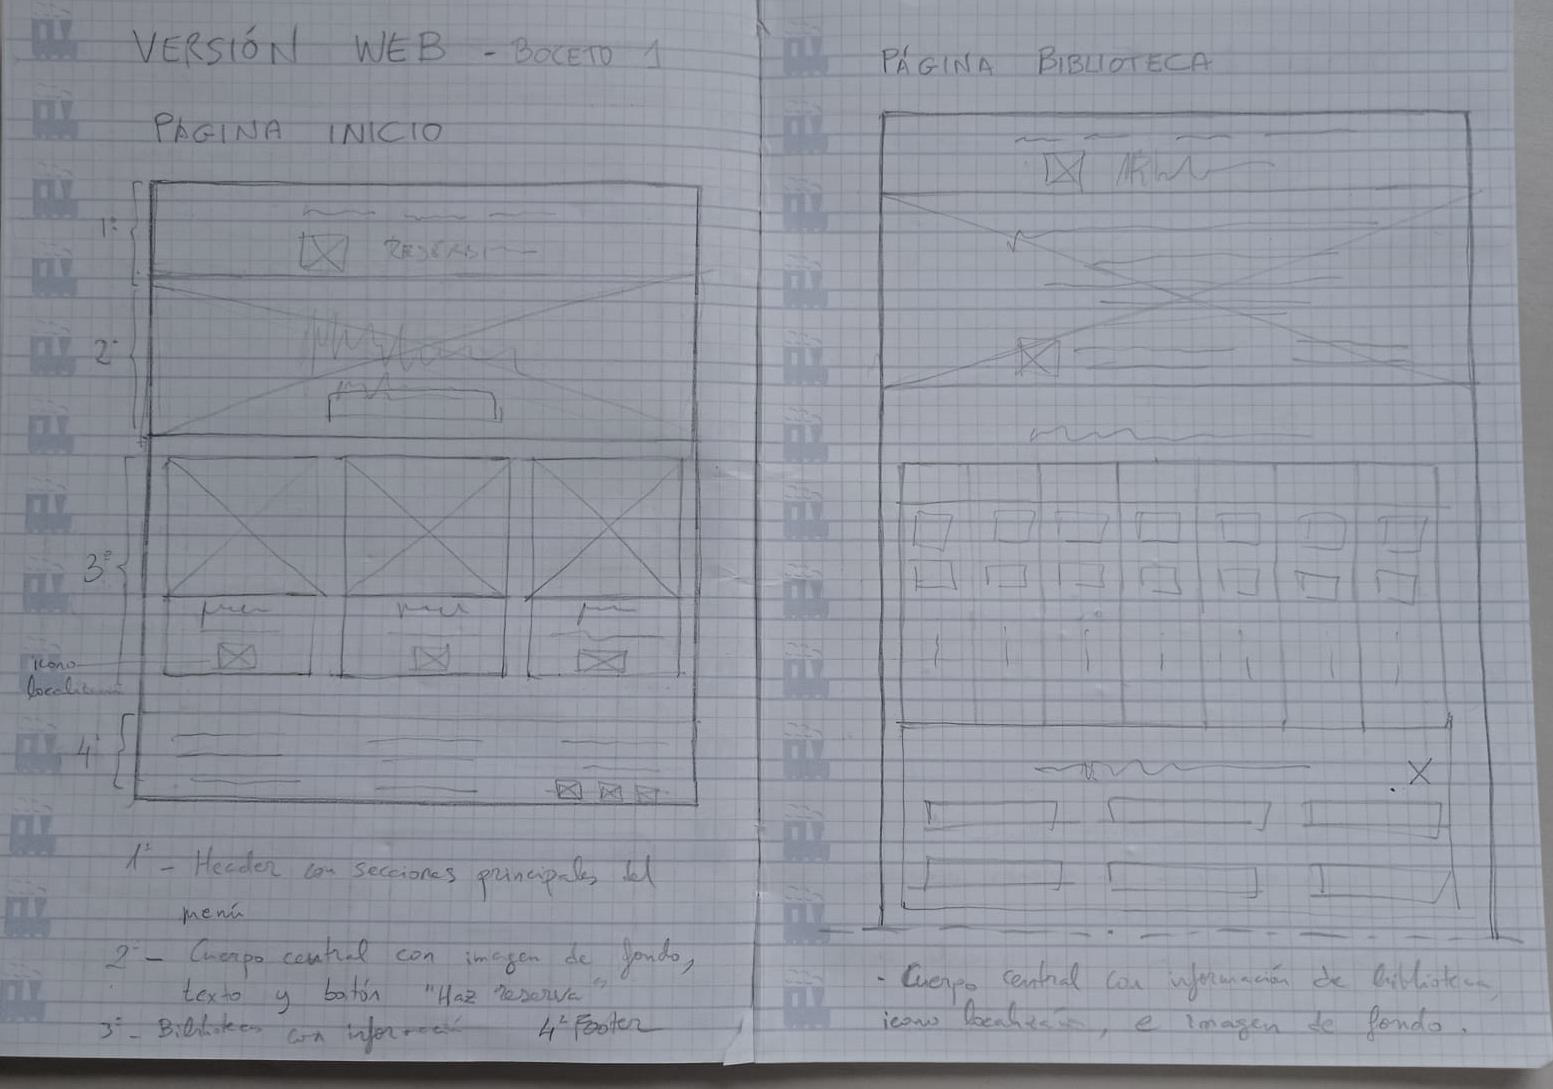 VERSIÓN WEB - BOCETO 1
PÁGINA INICIO
1º
2º
3º
icono
localización
4º
1º - Header con secciones principales del
menú
2º - Cuerpo central con imagen de fondo,
texto y botón "Haz reserva"
3º - Bibliotecas con información 4º Footer
PÁGINA BIBLIOTECA
X
- Cuerpo central con información de biblioteca,
icono localización, e imagen de fondo.